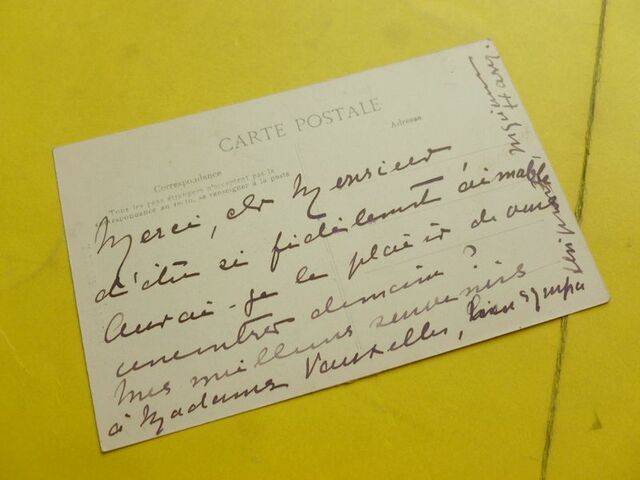 CARTE POSTALE
Correspondance
Adresse
Tous les pays étrangers n'acceptent pas la
correspondance au recto, se renseigner à la poste
Merci, cher Monsieur
d'être si fidèlement aimable,
Aurai-je le plaisir de vous
rencontrer demain ?
Mes meilleurs souvenirs
à Madame Vauxelles, bien sympa